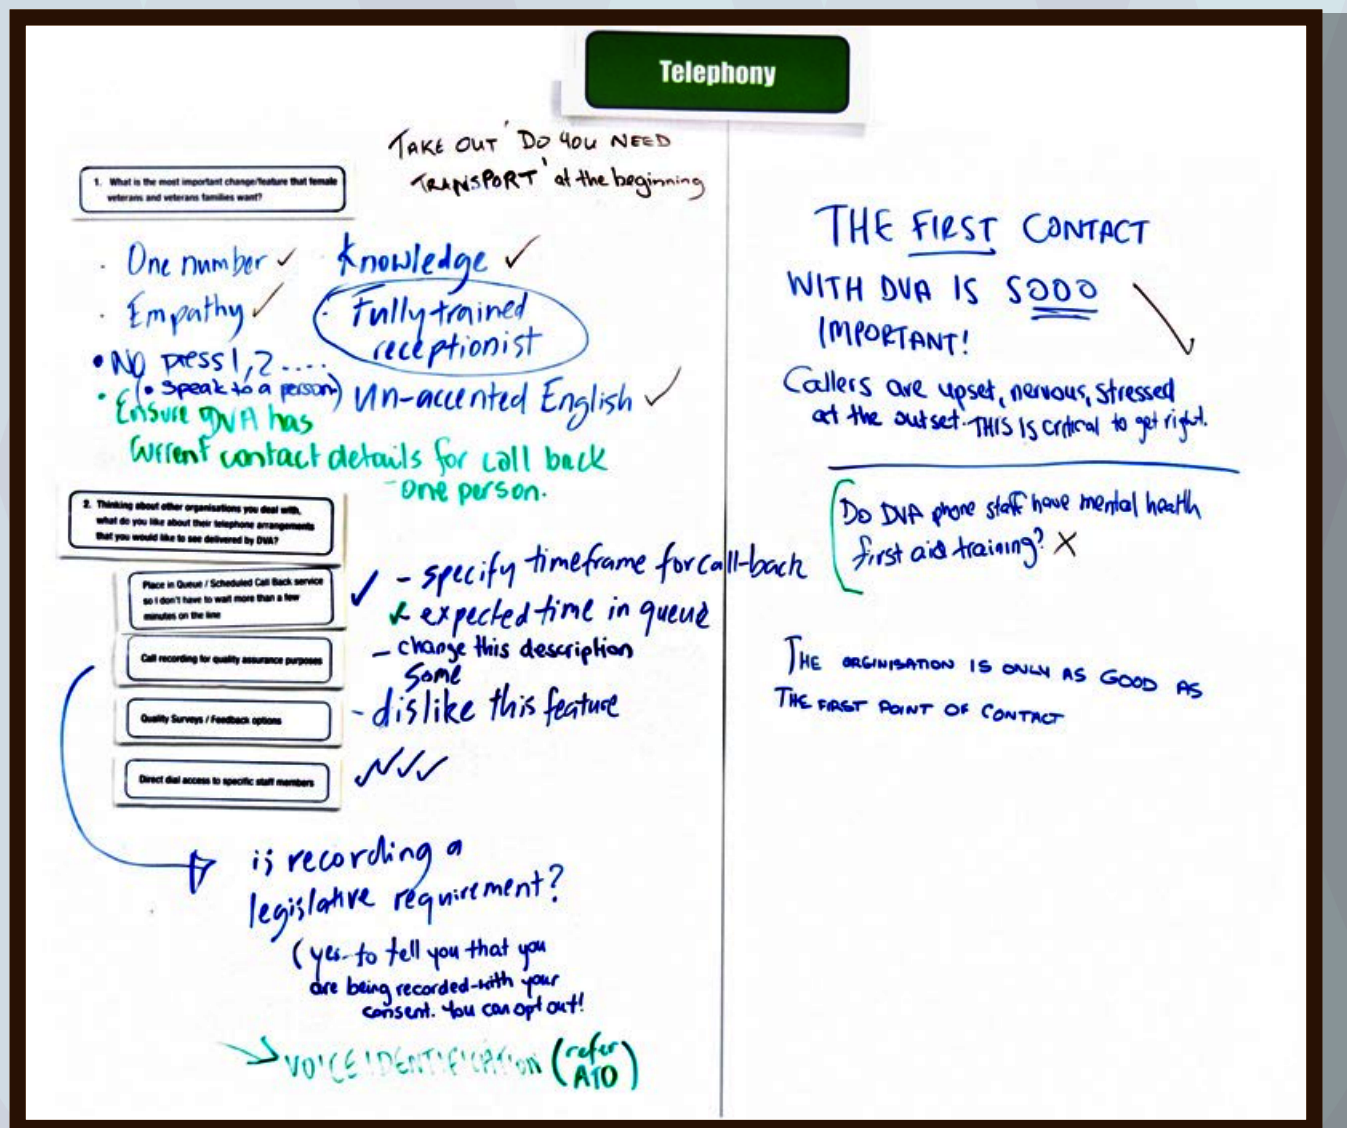 Telephony
TAKE OUT 'DO YOU NEED
TRANSPORT' at the beginning
1. What is the most important change/feature that female
veterans and veterans families want?
· One number ✓
· Empathy ✓
• No press 1, 2 ....
(• Speak to a person)
Knowledge ✓
· Fully trained
receptionist
Un-accented English ✓
• Ensure DVA has
current contact details for call back
- one person.
2. Thinking about other organisations you deal with,
what do you like about their telephone arrangements
that you would like to see delivered by DVA?
Place in Queue / Scheduled Call Back service
so I don't have to wait more than a few
minutes on the line
✓ - specify timeframe for call-back
& expected time in queue
Call recording for quality assurance purposes
- change this description
Some
Quality Surveys / Feedback options
- dislike this feature
Direct dial access to specific staff members
✓✓✓
is recording a
legislative requirement?
(yes - to tell you that you
are being recorded - with your
consent. You can opt out!
VOICE IDENTIFICATION (refer
ATO)
THE FIRST CONTACT
WITH DVA IS SOOO
IMPORTANT!
Callers are upset, nervous, stressed
at the outset. THIS IS critical to get right.
Do DVA phone staff have mental health
first aid training? X
THE ORGINISATION IS ONLY AS GOOD AS
THE FIRST POINT OF CONTACT